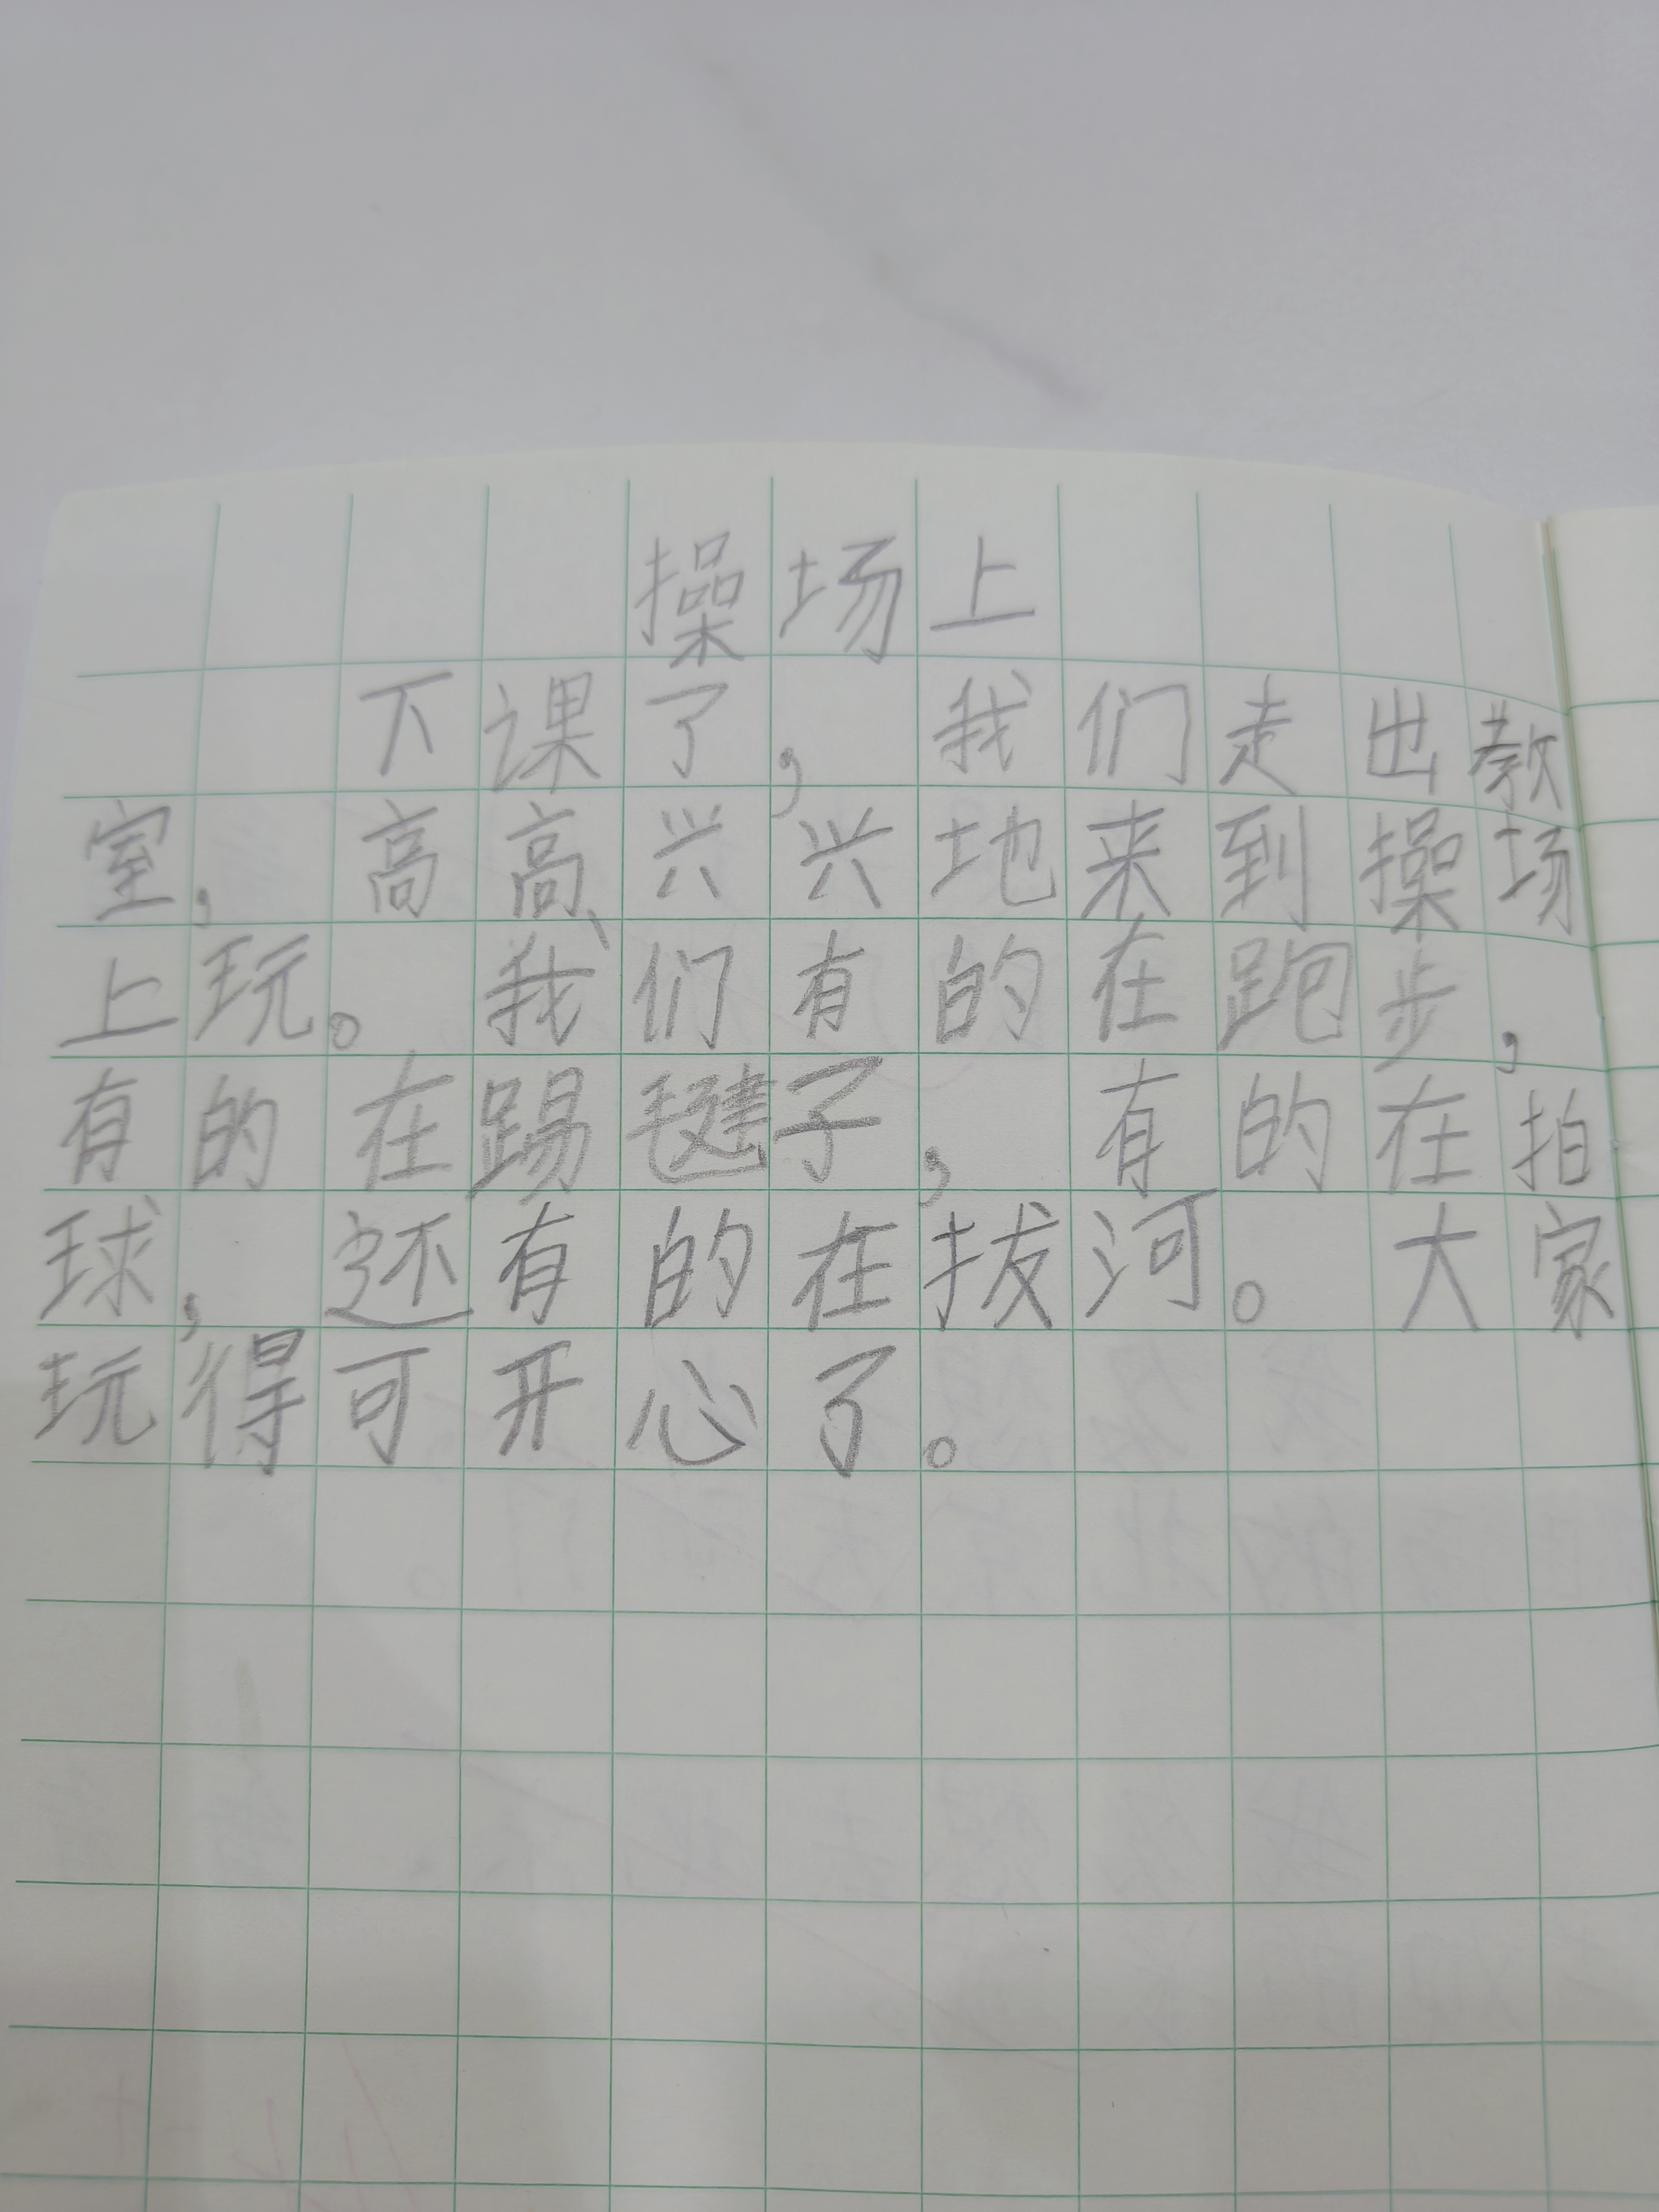 操场上
下课了，我们走出教
室，高高兴兴地来到操场
上玩。我们有的在跑步，
有的在踢毽子，有的在拍
球，还有的在拔河。大家
玩得可开心了。